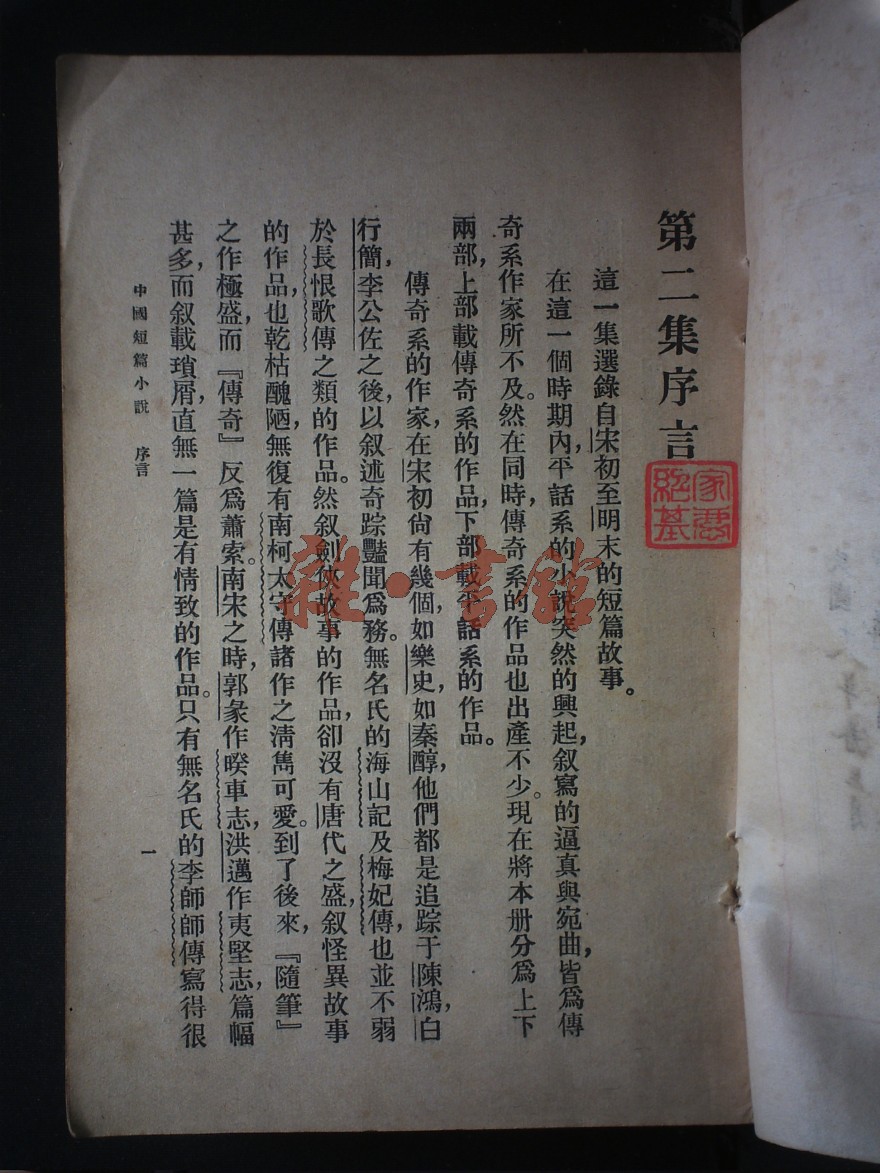 第二集序言
這一集選錄自宋初至明末的短篇故事。
在這一個時期內，平話系的小說突然的興起，叙寫的逼真與宛曲，皆爲傳
奇系作家所不及。然在同時，傳奇系的作品也出產不少。現在將本册分爲上下
兩部，上部載傳奇系的作品，下部載平話系的作品。
傳奇系的作家，在宋初尙有幾個，如樂史，如秦醇，他們都是追踪于陳鴻，白
行簡，李公佐之後，以叙述奇踪豔聞爲務。無名氏的海山記及梅妃傳，也並不弱
於長恨歌傳之類的作品。然叙劍俠故事的作品，卻沒有唐代之盛，叙怪異故事
的作品，也乾枯醜陋，無復有南柯太守傳諸作之淸雋可愛。到了後來，『隨筆』
之作極盛，而『傳奇』反爲蕭索。南宋之時，郭彖作睽車志，洪邁作夷堅志，篇幅
甚多，而叙載瑣屑，直無一篇是有情致的作品。只有無名氏的李師師傳寫得很
中國短篇小說　序言
一
雜·書館